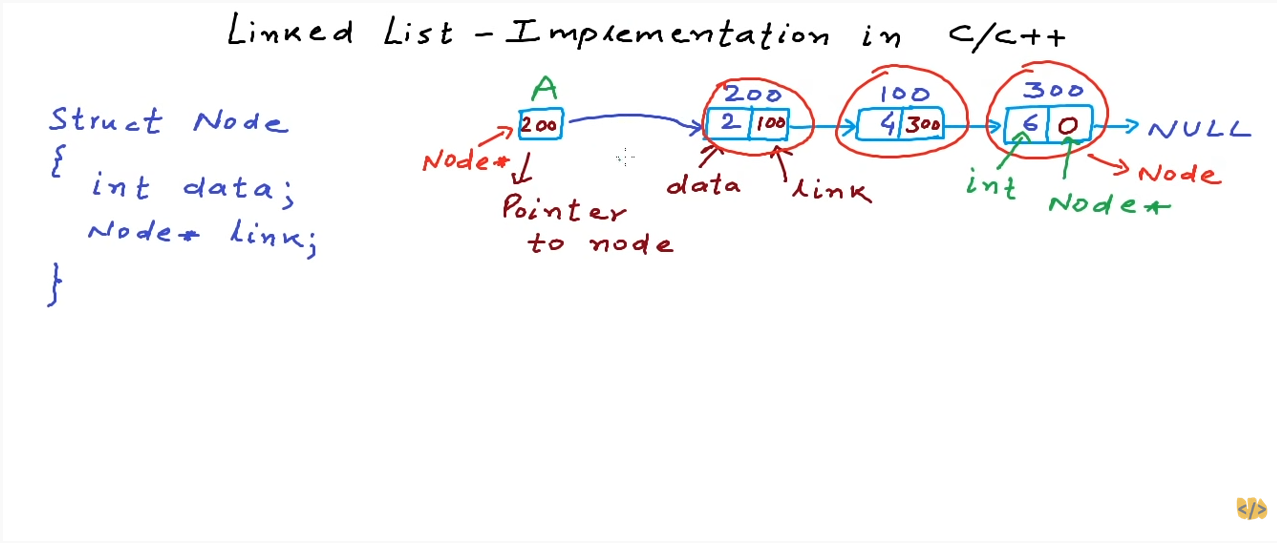 Linked List - Implementation in C/C++
Struct Node
{
int data;
Node* link;
}
A
200
Node*
Pointer
to node
200
2 100
data
link
100
4 300
300
6 0
int
Node*
Node
NULL
</>